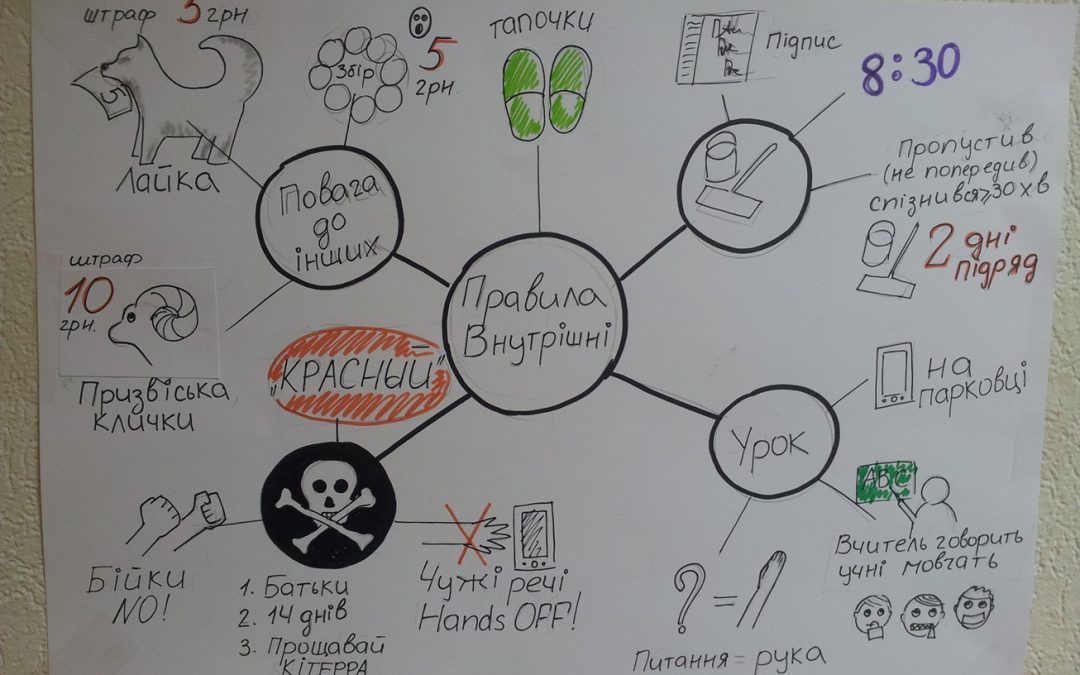 штраф 5 грн
5
Лайка
Збір
5
грн.
тапочки
Підпис
8:30
Пропустив
(не попередив)
спізнився ⩾30 хв
2 дні
підряд
Повага
до
інших
штраф
10
грн.
Призвіська
клички
Правила
Внутрішні
„КРАСНЫЙ"
на
парковці
Урок
ABC
Вчитель говорить
учні мовчать
Бійки
NO!
1. Батьки
2. 14 днів
3. Прощавай
КІТЕРРА
Чужі речі
Hands OFF!
? =
Питання = рука